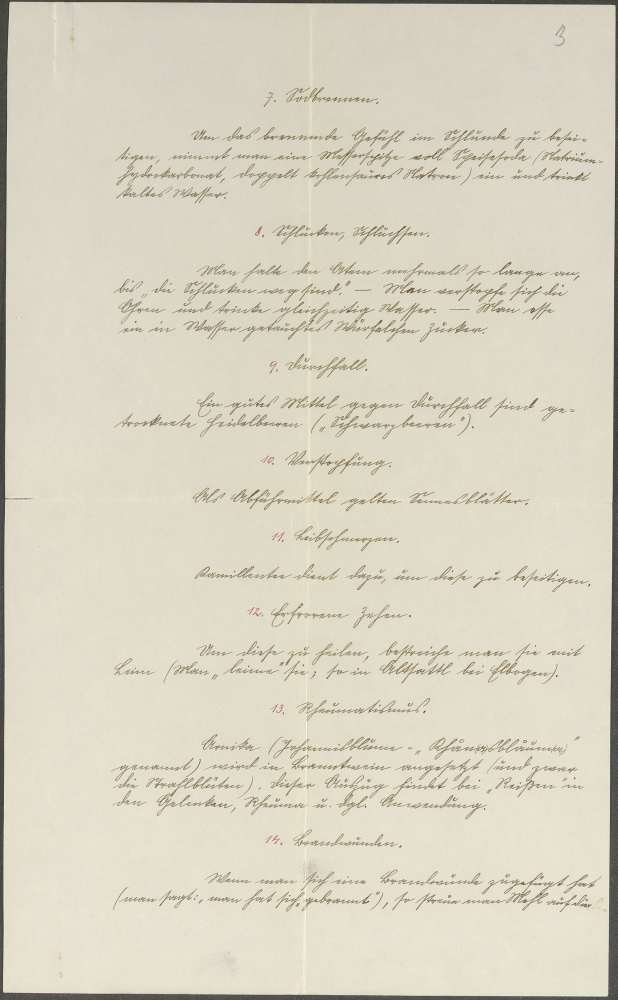 3
7. Sodbrennen.
Um das brennende Gefühl im Schlunde zu besei-
tigen, nimmt man eine Messerspitze voll Speisesoda (Natrium-
hydrokarbonat, doppelt kohlensaures Natron) ein und trinkt
kaltes Wasser.
8. Schlucken, Schluchsen.
Man halte den Atem mehrmals so lange an,
bis „die Schlucken weg sind." — Man verstopfe sich die
Ohren und trinke gleichzeitig Wasser. — Man esse
ein in Wasser getauchtes Würfelchen Zucker.
9. Durchfall.
Ein gutes Mittel gegen Durchfall sind ge-
trocknete Heidelbeeren („Schwarzbeeren").
10. Verstopfung.
Als Abführmittel gelten Sennesblätter.
11. Leibschmerzen.
Kamillentee dient dazu, um diese zu beseitigen.
12. Erfrorene Zehen.
Um diese zu heilen, bestreiche man sie mit
Leim (Man „leime" sie; so in Altsattl bei Elbogen).
13. Rheumatismus.
Arnika (Johannisblume - „
genannt) wird in Branntwein angesetzt (und zwar
die Strahlblüten). Dieser Auszug findet bei „Reißen" in
den Gelenken, Rheuma u. dgl. Anwendung.
14. Brandwunden.
Wenn man sich eine Brandwunde zugefügt hat
(man sagt: „man hat sich gebrannt"), so streue man Mehl auf die